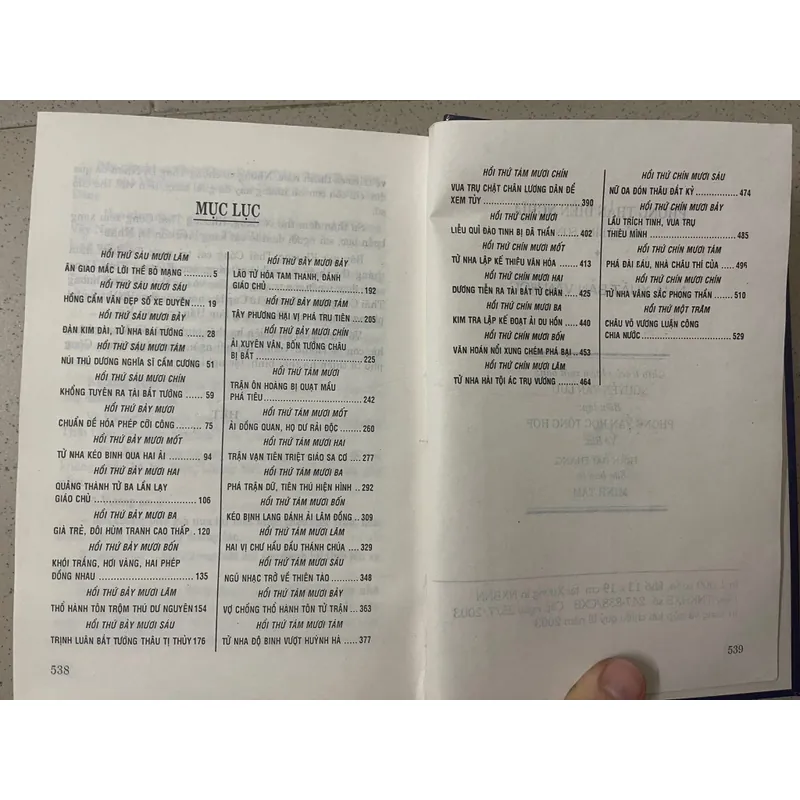 MỤC LỤC
HỒI THỨ SÁU MƯƠI LĂM
ÂN GIAO MẮC LỜI THỀ BỎ MẠNG 5
HỒI THỨ SÁU MƯƠI SÁU
HỒNG CẨM VẪN ĐẸP SỐ XE DUYÊN 19
HỒI THỨ SÁU MƯƠI BẢY
ĐÀN KIM ĐÀI, TỬ NHA BÁI TƯỚNG 28
HỒI THỨ SÁU MƯƠI TÁM
NÚI THỦ DƯƠNG NGHĨA SĨ CẦM CƯƠNG 51
HỒI THỨ SÁU MƯƠI CHÍN
KHỔNG TUYÊN RA TÀI BẮT TƯỚNG 59
HỒI THỨ BẢY MƯƠI
CHUẨN ĐỀ HÓA PHÉP CỠI CÔNG 75
HỒI THỨ BẢY MƯƠI MỐT
TỬ NHA KÉO BINH QUA HAI ẢI 94
HỒI THỨ BẢY MƯƠI HAI
QUẢNG THÀNH TỬ BA LẦN LẠY
GIÁO CHỦ 106
HỒI THỨ BẢY MƯƠI BA
GIÀ TRẺ, ĐÔI HÙM TRANH CAO THẤP 120
HỒI THỨ BẢY MƯƠI BỐN
KHÓI TRẮNG, HƠI VÀNG, HAI PHÉP
ĐỒNG NHAU 135
HỒI THỨ BẢY MƯƠI LĂM
THỔ HÀNH TÔN TRỘM THÚ DƯ NGUYÊN 154
HỒI THỨ BẢY MƯƠI SÁU
TRỊNH LUÂN BẮT TƯỚNG THÂU TỊ THỦY 176
HỒI THỨ BẢY MƯƠI BẢY
LÃO TỬ HÓA TAM THANH, ĐÁNH
GIÁO CHỦ 192
HỒI THỨ BẢY MƯƠI TÁM
TÂY PHƯƠNG HAI VỊ PHÁ TRU TIÊN 205
HỒI THỨ BẢY MƯƠI CHÍN
ẢI XUYÊN VÂN, BỐN TƯỚNG CHÂU
BỊ BẮT 225
HỒI THỨ TÁM MƯƠI
TRẬN ÔN HOÀNG BỊ QUẠT MẦU
PHÁ TIÊU 242
HỒI THỨ TÁM MƯƠI MỐT
ẢI ĐỒNG QUAN, HỌ DƯ RẢI ĐỘC 260
HỒI THỨ TÁM MƯƠI HAI
TRẬN VẠN TIÊN TRIỆT GIÁO SA CƠ 277
HỒI THỨ TÁM MƯƠI BA
PHÁ TRẬN DỮ, TIÊN THÚ HIỆN HÌNH 292
HỒI THỨ TÁM MƯƠI BỐN
KÉO BỊNH LANG ĐÁNH ẢI LÂM ĐỒNG 309
HỒI THỨ TÁM MƯƠI LĂM
HAI VỊ CHƯ HẦU ĐẦU THÁNH CHÚA 329
HỒI THỨ TÁM MƯƠI SÁU
NGŨ NHẠC TRỞ VỀ THIÊN TÀO 348
HỒI THỨ TÁM MƯƠI BẢY
VỢ CHỒNG THỔ HÀNH TÔN TỬ TRẬN 363
HỒI THỨ TÁM MƯƠI TÁM
TỬ NHA ĐỘ BINH VƯỢT HUỲNH HÀ 377
538
HỒI THỨ TÁM MƯƠI CHÍN
VUA TRỤ CHẶT CHÂN LƯƠNG DÂN ĐỂ
XEM TỦY 390
HỒI THỨ CHÍN MƯƠI
LIỄU QUỈ ĐÀO TINH BỊ ĐẢ THẦN 402
HỒI THỨ CHÍN MƯƠI MỐT
TỬ NHA LẬP KẾ THIÊU VĂN HÓA 413
HỒI THỨ CHÍN MƯƠI HAI
DƯƠNG TIỄN RA TÀI BẮT TỬ CHÂN 425
HỒI THỨ CHÍN MƯƠI BA
KIM TRA LẬP KẾ ĐOẠT ẢI DU HỒN 440
HỒI THỨ CHÍN MƯƠI BỐN
VĂN HOÁN NỔI XUNG CHÉM PHÁ BẠI 453
HỒI THỨ CHÍN MƯƠI LĂM
TỬ NHA HÀI TỘI ÁC TRỤ VƯƠNG 464
HỒI THỨ CHÍN MƯƠI SÁU
NỮ OA ĐÓN THÂU ĐẮT KỶ 474
HỒI THỨ CHÍN MƯƠI BẢY
LẦU TRÍCH TINH, VUA TRỤ
THIÊU MÌNH 485
HỒI THỨ CHÍN MƯƠI TÁM
PHÁ ĐÀI ĐÁU, NHÀ CHÂU THÍ CỦA 496
HỒI THỨ CHÍN MƯƠI CHÍN
TỬ NHA VÂNG SẮC PHONG THẦN 510
HỒI THỨ MỘT TRĂM
CHÂU VÕ VƯƠNG LUẬN CÔNG
CHIA NƯỚC 529
539